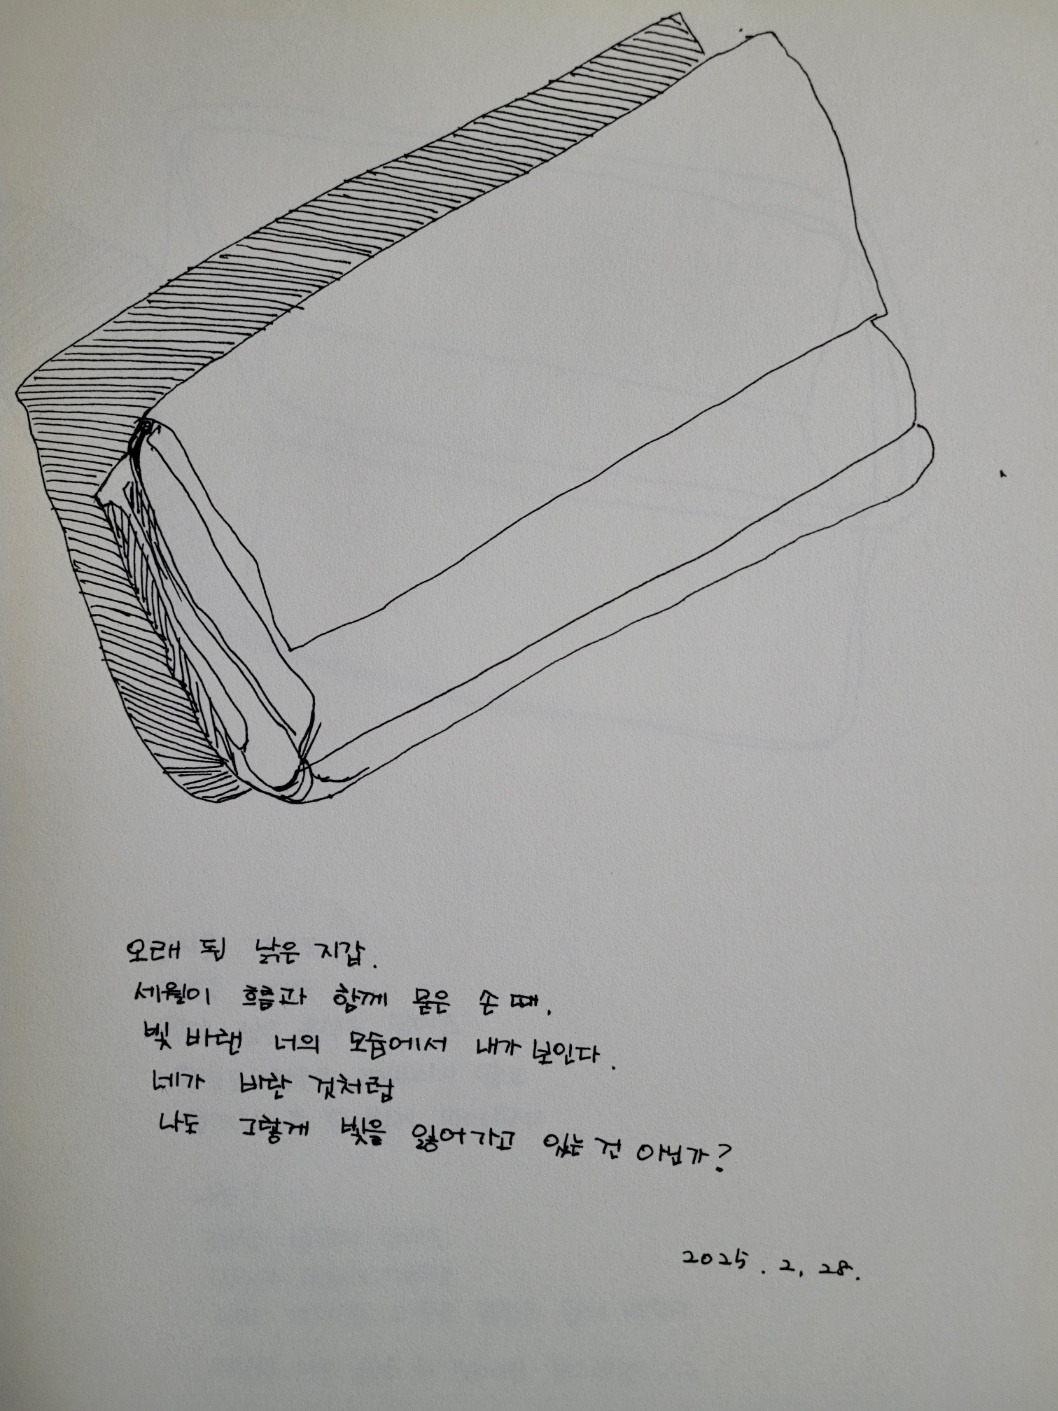 오래 된 낡은 지갑.
세월이 흐름과 함께 묻은 손 때.
빛 바랜 너의 모습에서 내가 보인다.
네가 바란 것처럼
나도 그렇게 빛을 잃어가고 있는 건 아닌가?
2025. 2. 28.